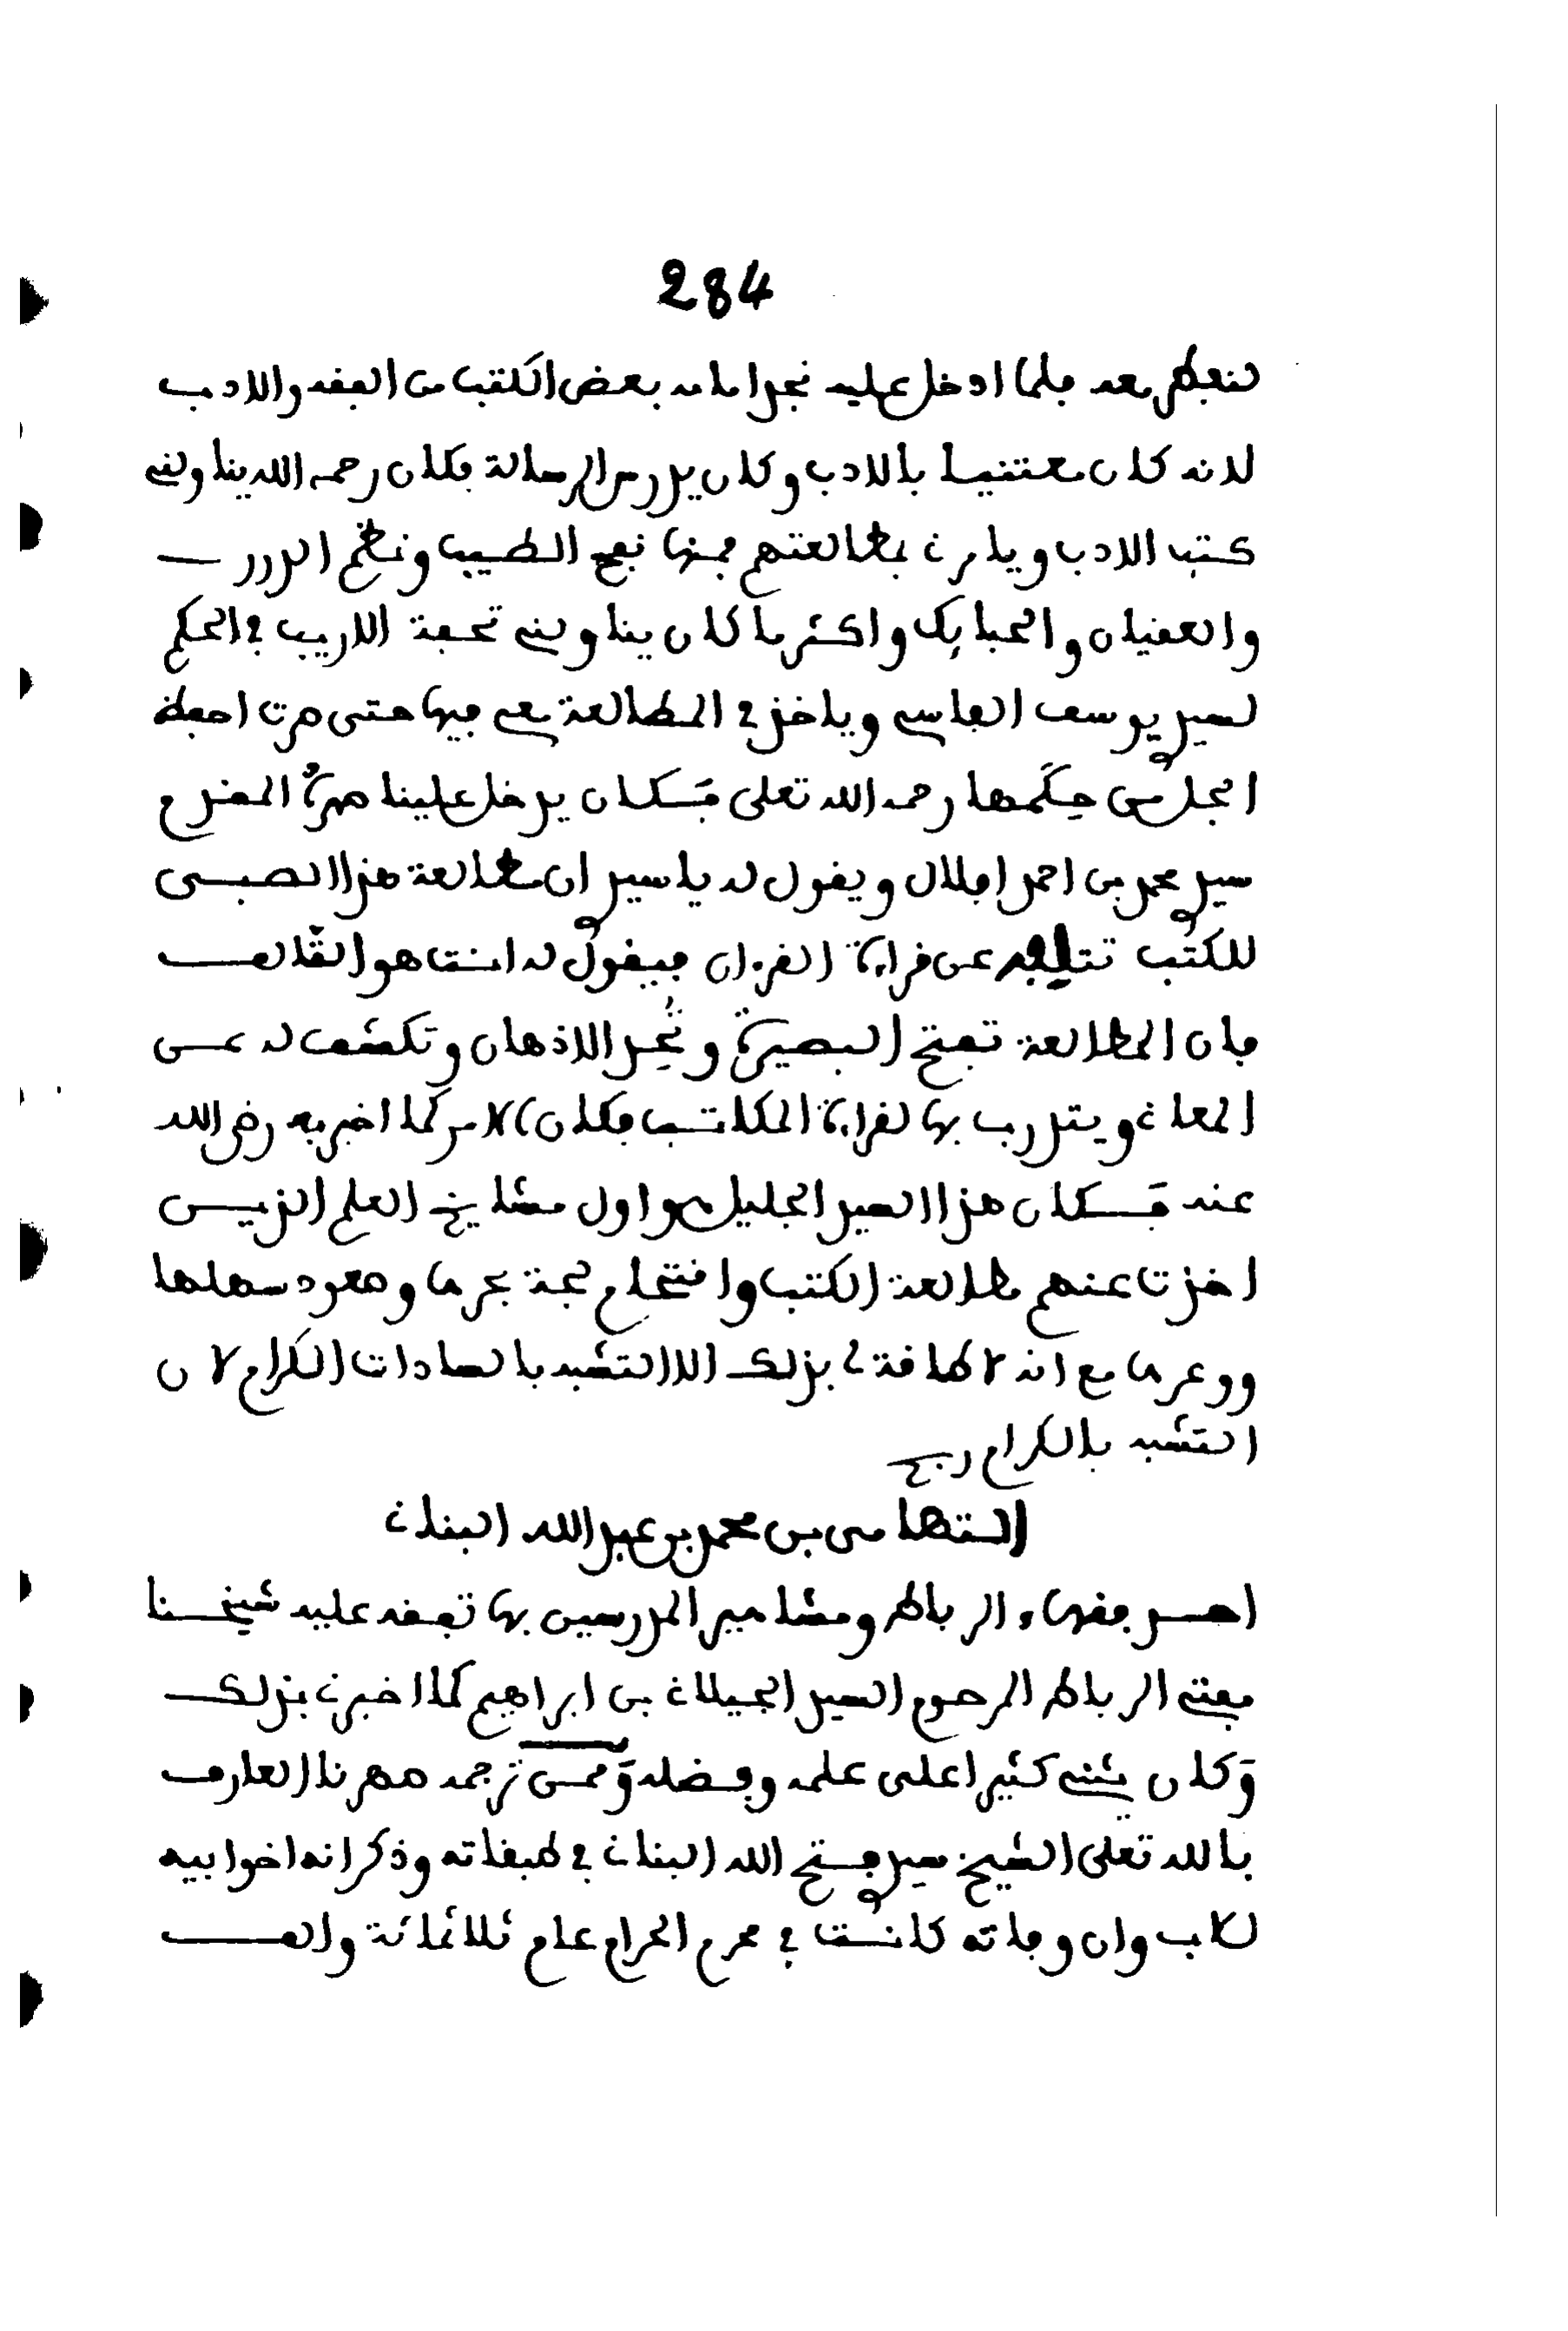 284
لنفطر معه فلما ادخل عليه نجد امامه بعض الكتب من الفقه والادب
لانه كان معتنيا بالادب وكان يدرس الرسالة فكان رحمه الله يناولني
كتب الادب ويامرني بمطالعتهم فمنها نفح الطيب ونظم الدرر
والعقيان والحبايك واكثر ما كان يناولني تحفة الاريب في الحكم
لسيدي يوسف الفاسي وياخذ في المطالعة معي فيها حتى صرت احفظ
الجل من حِكَمها رحمه الله تعلى فَكان يدخل علينا صهرُه المدرح
سيدي محمد بن احمد افلال ويقول له يا سيدي ان مطالعة هذا الصبي
للكتب تتلفه عن قراءة القرءان فيقول له انت هو التالف
فان المطالعة تفتح البصيرة وتُحِد الاذهان وتكشف له عن
المعاني ويتدرب بها لقراءة المكاتب فكان الامر كما اخبر به رضي الله
عنه فَكان هذا السيد الجليل هو اول مشايخ العلم الذيـن
اخذت عنهم مطالعة الكتب وافتحام لجة بحرها وصعود سهلها
ووعرها مع انه لا طاقة لي بذلك الا التشبه بالسادات الكرام لان
التشبه بالكرام ربح
التهامي بن محمد بن عبد الله البناني
احد فقهاء الرباط ومشاهير المدرسين بها تفقه عليه شيخنا
مفتي الرباط المرحوم السيد الجيلاني بن ابراهيم كما اخبرني بذلك
وَكان يثني كثيرا على علمه وفضله وَممن ترجمه صهرنا العارف
بالله تعلى الشيخ سيدي فتح الله البناني في طبقاته وذكر انه اخو ابيه
لاب وان وفاته كانت في محرم الحرام عام ثلاثمائة والف